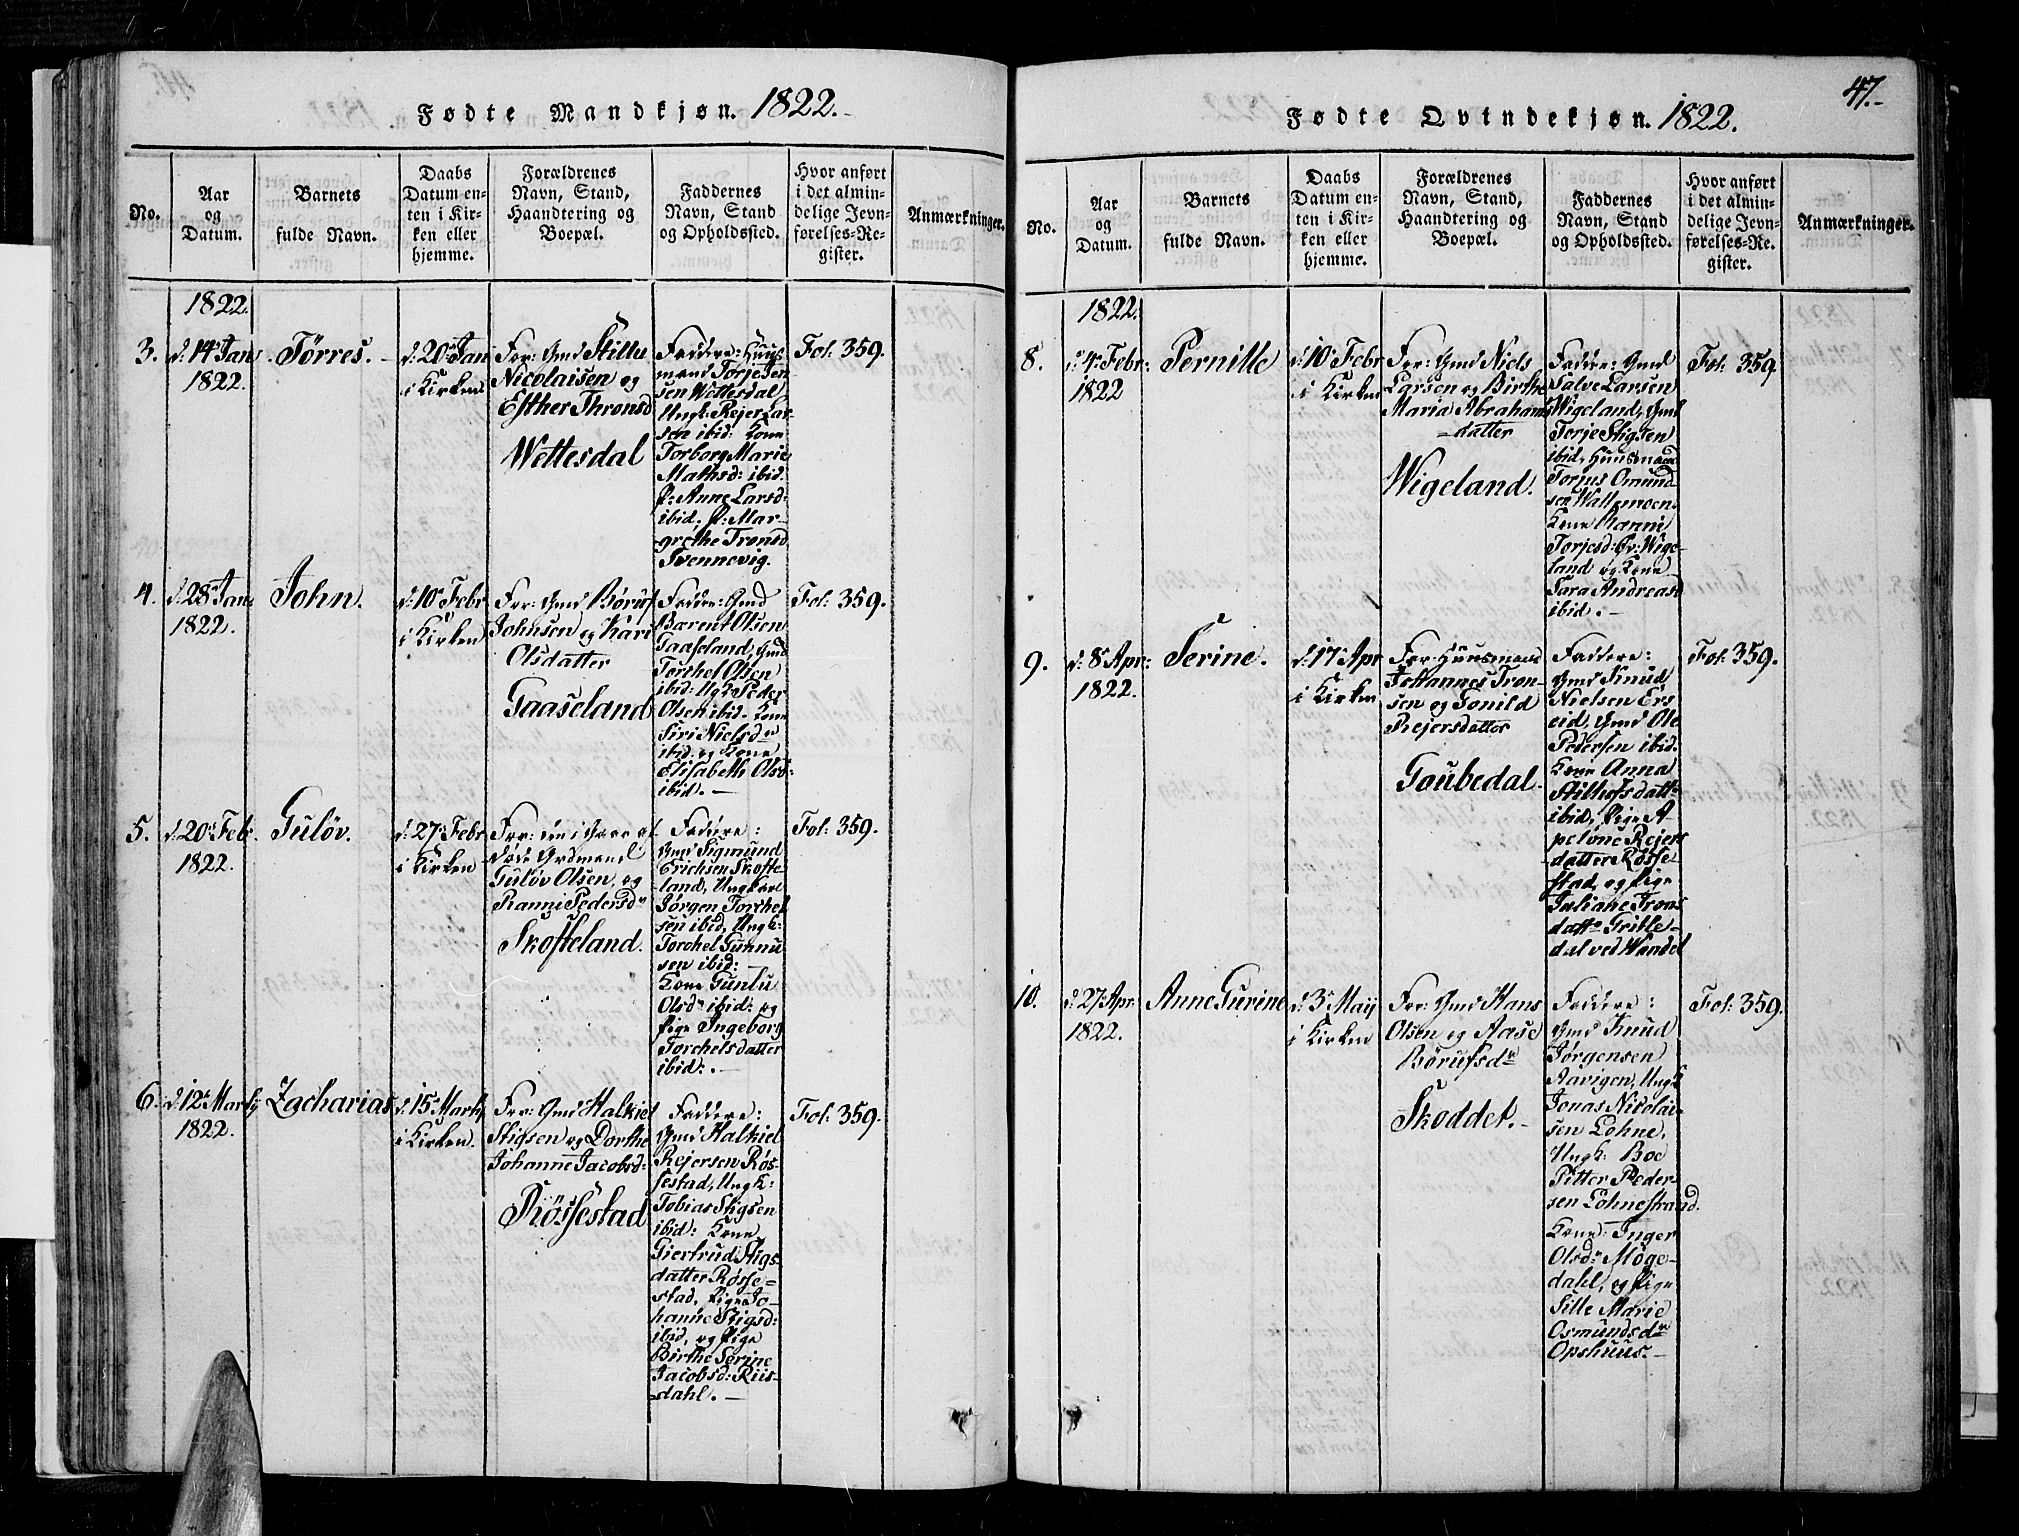 Fødte Mandkjøn. 1822.-
No.
Aar
og
Datum.
Barnets
fulde Navn.
Daabs
Datum en-
ten i Kir-
ken eller
hjemme.
Forældrenes
Navn, Stand,
Haandtering og
Boepæl.
Faddernes
Navn, Stand
og Opholdssted.
Hvor anført
i det almin-
delige Jevn-
førelses-Re-
gister.
Anmærkninger.
1822.
3.
d: 14 Jan:
1822.
Tørres.-
d: 20 Jan
i Kirken
For: Gmd Stillu
Nicolaisen og
Esther Thronsd
Wettesdal
Faddere: Huus
mand Torje Jen
sen Wettesdal
Ungk: Rejer Lar
sen ibid: Kone
Torborg Marie
Mathsd: ibid.
P: Anne Larsd:
ibid. P: Mar-
grethe Tronsd
Tvennevig.
Fol: 359.
4.
d: 28 Jan:
1822.
John.
d: 10 Febr
i Kirken
For: Gmd Børuf
Johnsen og Kari
Olsdatter
Gaaseland
Faddere: Gmd
Bærent Olsen
Gaaseland, Gmd
Torchel Olsen
ibid: Ungk Peder
Olsen ibid. Kone
Siri Nielsdr
ibid. og Kone
Elisabeth Olsd:
ibid.-
Fol: 359.
5.
d: 20 Febr.
1822.
Guløv.
d: 27 Febr
i Kirken
For: den i Gaar af
døde Grdmand
Guløv Olsen, og
Ranni Pedersdr
Skofteland.
Faddere:
Gmd Sigmund
Erichsen Skofte-
land, Ungkarl
Jørgen Torchel
sen ibid, Ungk:
Torchel Gunnu
sen ibid:-
Kone Gunlu
Olsdr ibid: og
Pige Ingeborg
Torchelsdatter
ibid:.-
Fol: 359.
6.
d: 12 Martij
1822.
Zacharias
d: 15 Martij
i Kirken.
For: Gmd Halkiel
Stigsen og Dorthe
Johanne Jacobsd:
Røssestad
Faddere:
Gmd Halkiel
Rejersen Røs-
sestad, Ungk:
Tobias Stigsen
ibid: Kone
Giertrud Stigs-
datter Røsse-
stad, Pige Jo-
hanne Stigsd:
ibid, og Pige
Birthe Serine
Jacobsd: Riis-
dahl.-
Fol: 359.
47.-
Fødte Qvindekjøn. 1822.
No.
Aar
og
Datum.
Barnets
fulde Navn.
Daabs
Datum en-
ten i Kir-
ken eller
hjemme.
Forældrenes
Navn, Stand,
Haandtering og
Boepæl.
Faddernes
Navn, Stand
og Opholdssted.
Hvor anført
i det almin-
delige Jevn-
førelses-Re-
gister.
Anmærkninger.
1822.
8.
d: 4 Febr:
1822
Pernille
d: 10 Febr
i Kirken
For: Gmd Niels
Larsen og Birthe
Maria Abrahams
-datter
Wigeland.
Faddere: Gmd
Salve Larsen
Wigeland, Gmd
Torje Stigsen
ibid, Huusmand
Torjus Omund
sen Wattnemoen
Kone Ranni
Torjesd: Øv: Wige-
land og Kone
Sara Andreasd
ibid.-
Fol: 359.
9.
d: 8 Apr:
1822.
Serine.
d: 17 Apr
i Kirken
For: Huusmand
Johannes Tron-
sen og Tonild
Rejersdatter
Goubedal.
Faddere:
Gmd Knud
Nielsen Ers
eid, Gmd Ole
Pedersen ibid.
Kone Anna
Stilhofsdattr
ibid, Pige A-
pelone Rejers
datter Røsse-
stad, og Pige
Juliane Trons
dattr Grille-
dal ved Mandal
Fol: 359.
10.
d: 27 Apr:
1822.
Anne Gurine
d: 3 May
i Kirken
For: Gmd Hans
Olsen og Aase
Børufsdr
Skoddet.-
Faddere:
Gmd Knud
Jørgensen
Aavigen, Ungk
Jonas Nicolai-
sen Lohne,
Ungk: Boe
Pitter Peder-
sen Lohnestrand.
Kone Inger
Olsdr Møge-
dahl, og Pige
Sille Marie
Osmundsdr
Opshuus.-
Fol: 359.